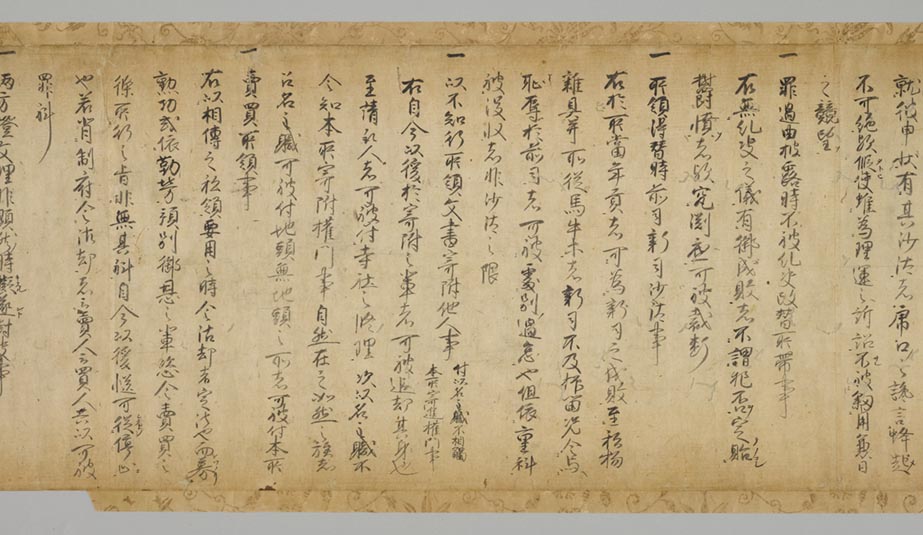 就彼申状有其沙汰者虎口之讒言蜂起
不可絶歟縦使雖為理運之訴訟不被叙用兼日
之競望
一 罪過由披露時不被糺決改替所帯事
右無糺決之儀有御成敗者不謂犯否定貽
鬱憤者歟究淵底可被裁断
一 所領得替時前司新司沙汰事
右於所當年貢者可為新司之成敗至私物
雜具并所従馬牛等者新司不及抑留況令与
恥辱於前司者可被處別過怠也但依重科
被没収者非沙汰之限
一 以不知行所領文書寄附他人事 付以名主職不相觸
本所寄進權門事
右自今以後於寄附之輩者可被追却其身也
至請取人者可被付寺社之修理次以名主職不
令知本所寄附權門事自然在之如然之族者
召名主職可被付地頭無地頭之所者可被付本所
一 賣買所領事
右以相傳之私領要用之時令沽却者定法也而或募
勲功或依勤労預別御恩之輩恣令賣買之
條所行之旨非無其科自今以後慥可被停止
也若背制府令沽却者云賣人云買人共以可被
罪科
一 両方證文理非顕然時擬遂對决事